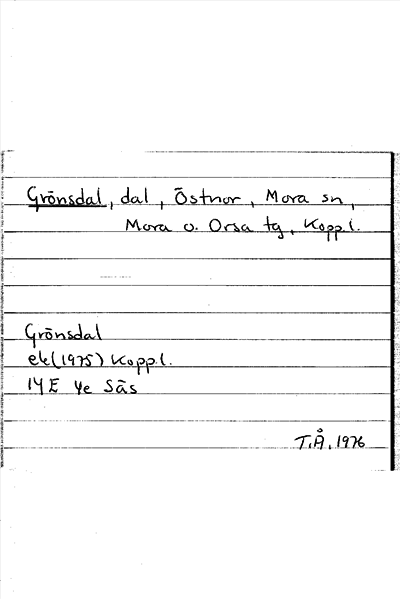 Grönsdal, dal, Östnor, Mora sn,
Mora o. Orsa tg, Kopp.l.
Grönsdal
ek(1975) Kopp.l.
14E 4e Säs
T.Å. 1976